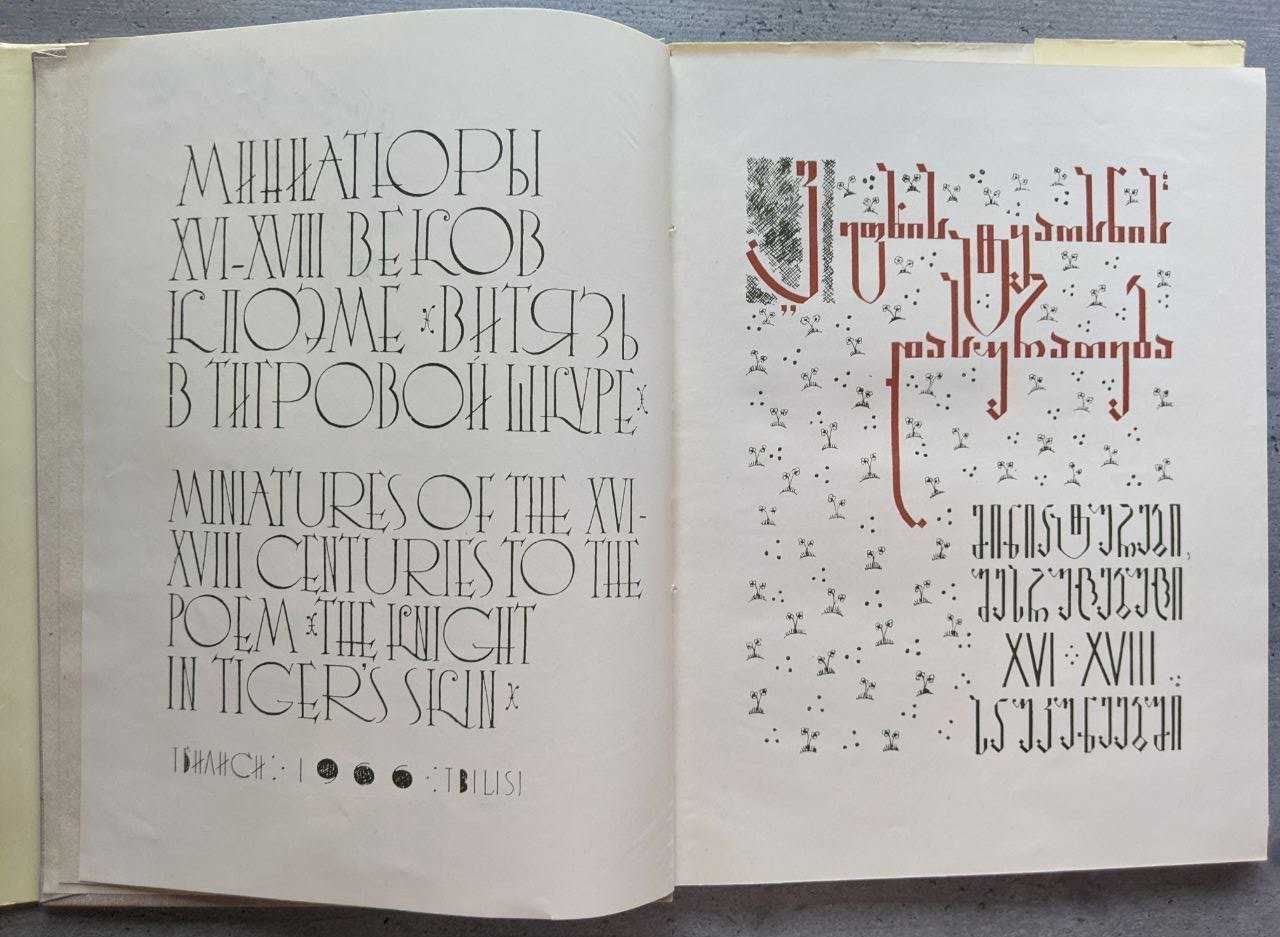 МИНИАТЮРЫ
XVI-XVIII ВЕКОВ
К ПОЭМЕ «ВИТЯЗЬ
В ТИГРОВОЙ ШКУРЕ»
MINIATURES OF THE XVI-
XVIII CENTURIES TO THE
POEM «THE KNIGHT
IN TIGER'S SKIN»
ТБИЛИСИ჻1966჻TBILISI
ვეფხისტყაოსნის
დასურათება
მინიატურები,
შესრულებული
XVI჻XVIII
საუკუნეებში